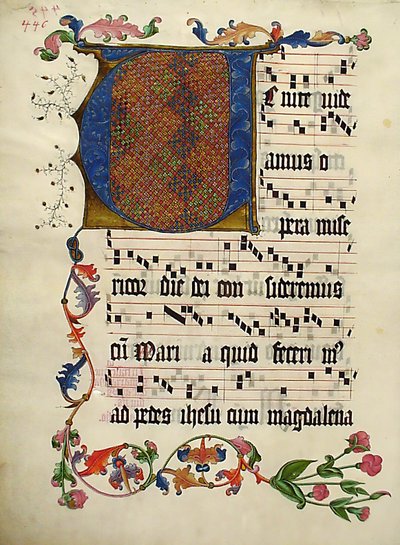 446
V E nite uide
amus o
pera mise
ricor die dei con sideremus
cū Mari a quid feceri mꝰ
ad pedes ihesu cum magdalena